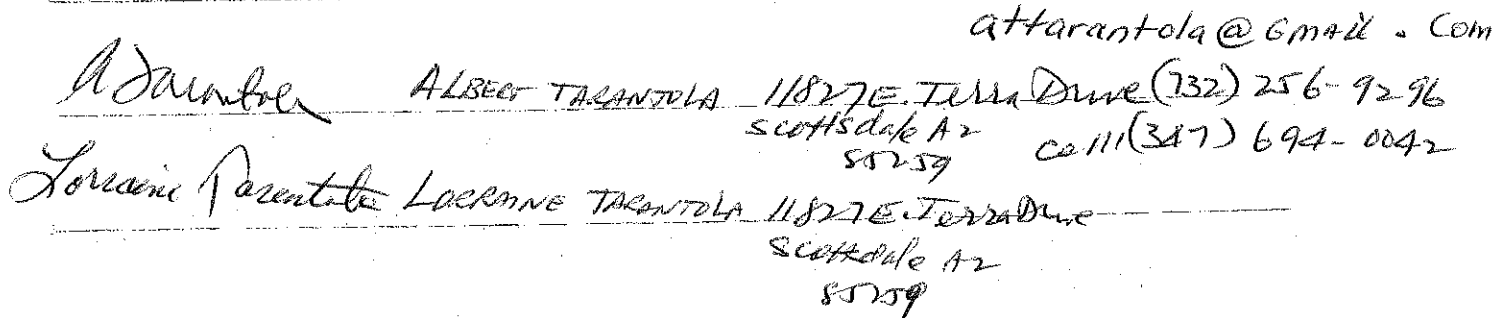 attarantola@Gmail.Com
A Tarantola ALBERT TARANTOLA 11827 E. Terra Drive (732) 256-9296
Scottsdale AZ cell (347) 694-0042
85259
Lorraine Tarantola LORRAINE TARANTOLA 11827 E. Terra Drive
Scottsdale AZ
85259